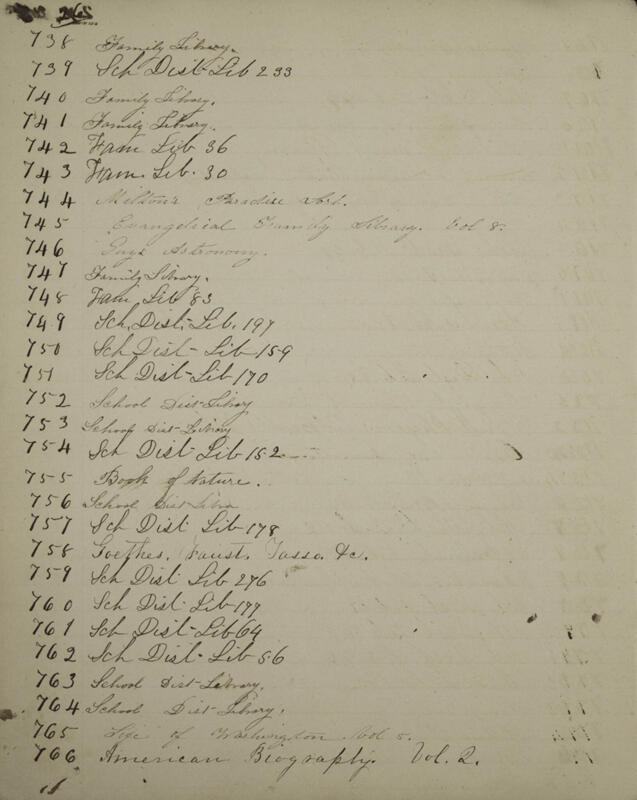 265
738 Family Library.
739 Sch Dist Lib 233
740 Family Library.
741 Family Library.
742 Fam Lib 36
743 Fam. Lib. 30
744 Miltons Paradise Lost.
745 Evangelical Family Library. Vol 8.
746 Guys Astronomy.
747 Family Library.
748 Fam, Lib 83
749 Sch, Dist. Lib. 197
750 Sch Dist- Lib 159
751 Sch Dist- Lib 170
752 School Dist Library
753 School Dist Library
754 Sch Dist Lib 152
755 Book of Nature.
756 School Dist Libra
757 Sch Dist Lib 178
758 Goethes, Faust. Tasso. &c.
759 Sch Dist Lib 276
760 Sch Dist Lib 177
761 Sch Dist- Lib 64
762 Sch Dist- Lib 56
763 School Dist Library.
764 School Dist Library.
765 Life of Washington Vol 5.
766 American Biography. Vol. 2.